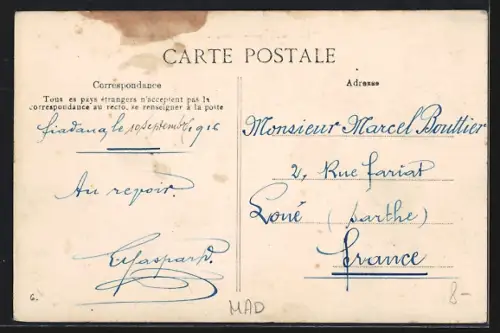 CARTE POSTALE
Correspondance
Tous les pays étrangers n'acceptent pas la
correspondance au recto, se renseigner à la poste
le 10 septembre 1916
Au revoir.
Gaspard.
Adresse
Monsieur Marcel Bouttier
2, Rue
Loué (Sarthe)
France
6.
MAD
8-